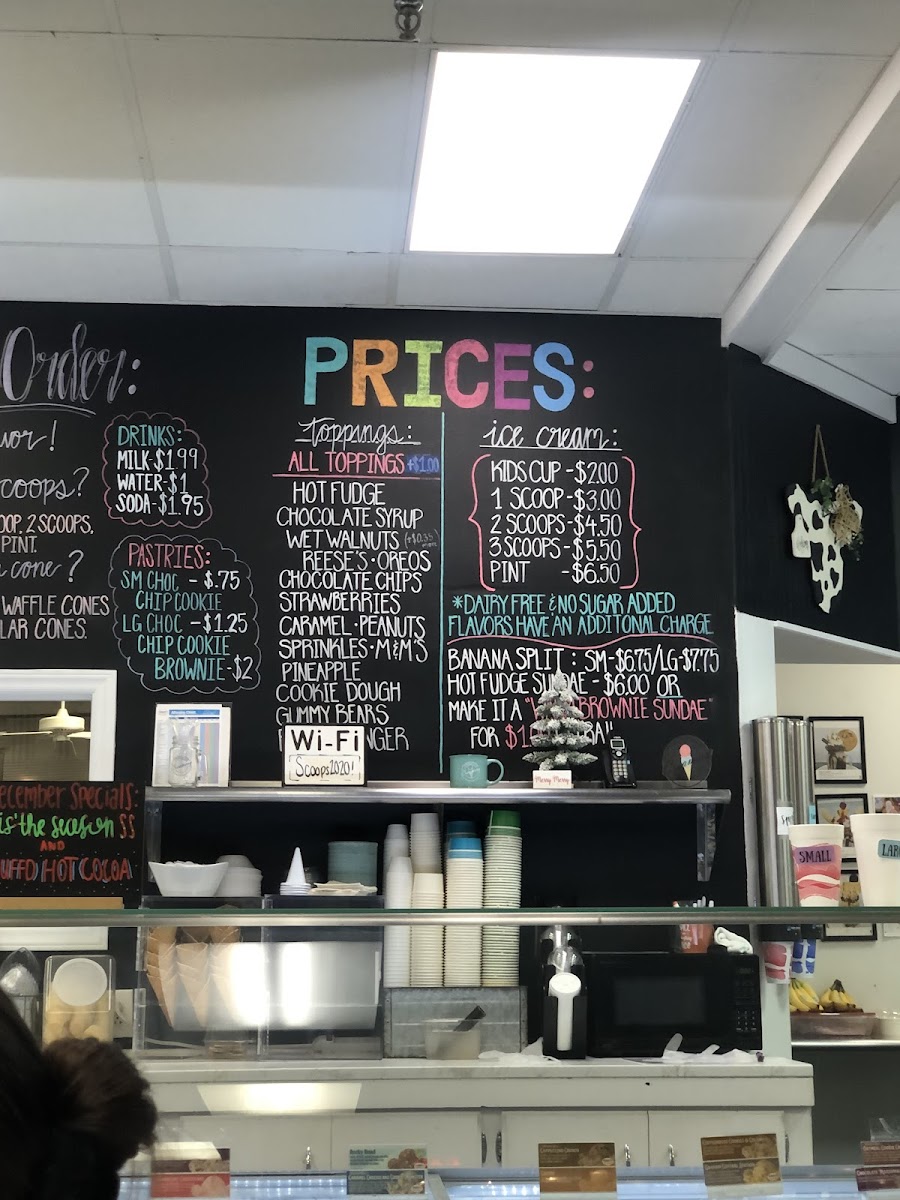 Order:
vor!
coops?
OOP, 2 SCOOPS,
PINT.
cone?
WAFFLE CONES
LAR CONES.
DRINKS:
MILK $1.99
WATER-$1
SODA-$1.95
PASTRIES:
SM CHOC - $.75
CHIP COOKIE
LG CHOC - $1.25
CHIP COOKIE
BROWNIE-$2
PRICES:
toppings:
ALL TOPPINGS +$1.00
HOT FUDGE
CHOCOLATE SYRUP
WET WALNUTS
REESE'S • OREOS
CHOCOLATE CHIPS
STRAWBERRIES
CARAMEL • PEANUTS
SPRINKLES • M&M'S
PINEAPPLE
COOKIE DOUGH
GUMMY BEARS
NGER
ice cream:
KIDS CUP - $2.00
1 SCOOP - $3.00
2 SCOOPS - $4.50
3 SCOOPS - $5.50
PINT - $6.50
*DAIRY FREE & NO SUGAR ADDED
FLAVORS HAVE AN ADDITONAL CHARGE
BANANA SPLIT : SM-$6.75/LG-$7.75
HOT FUDGE SUNDAE - $6.00 OR
MAKE IT A "BROWNIE SUNDAE"
FOR $1
Wi-Fi
Scoops2020!
Merry Merry
ecember Specials:
is the season $$
AND
UFFD HOT COCOA
SMALL
LARG
Rocky Road